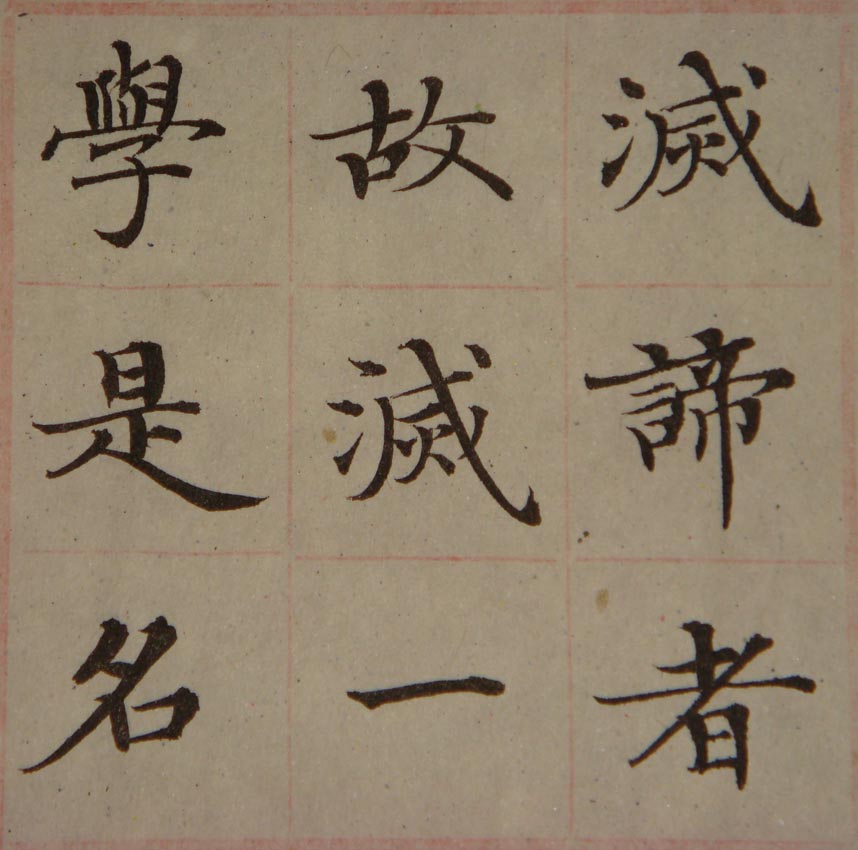 滅諦者
故滅一
學是名